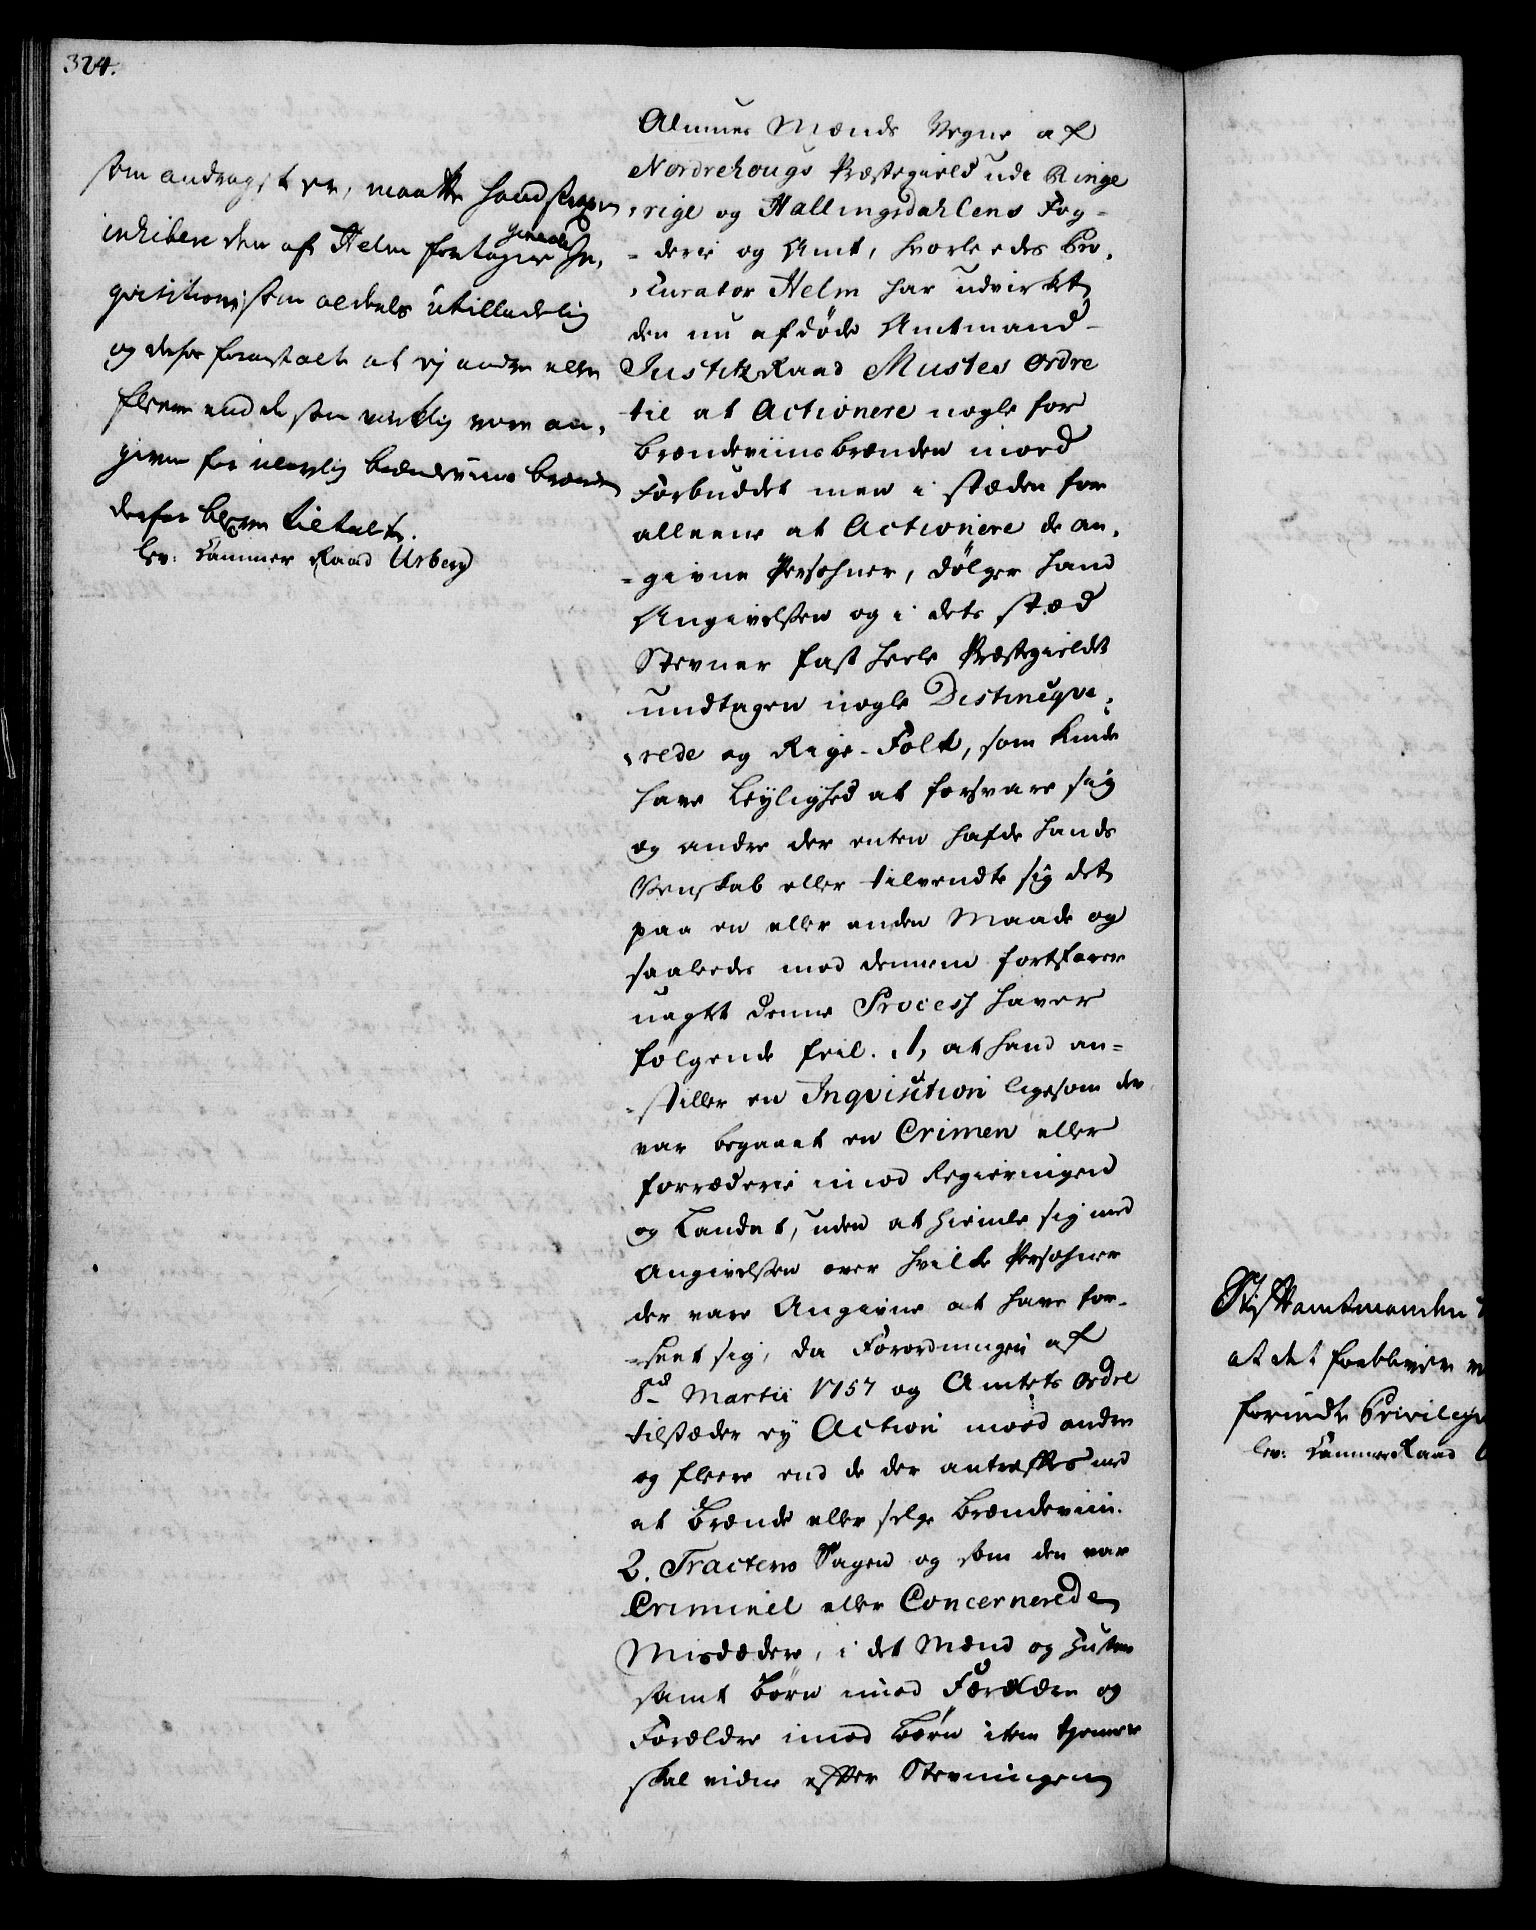 324.
som andragit er, maatte hand strax
inhibere den af Helm foretagne Generale In,
qvisition, som aldeels utilladelig
og derfor foranstalte at ej andre eller
fleere end de som virkelig vare an,
given for ulovlig brændeviins brænden
derfor bleve tiltalte.
lev: Cammer Raad Urberg
Almues Mænds Vegne af
Nordrehougs Præstegield udi Ringe
rige og Hallingsdahlens Fog-
-derie og Amt, hvorleedes Pro,
curator Helm har udvirket
den nu afdøde Amtmand
JustitzRaad Mustes Ordre
til at Actionere nogle for
brændeviinsbrænden imod
Forbuddet men i stæden for
alleene at Actionere de an,
-givne Persohner, dølger hand
Angivelsen og i dets stæd
Stevner fast heele Præstegieldet
undtagen nogle Distinqve,
rede og Rige-Folk, som kunde
have Leylighed at forsvare sig
og andre der enten hafde hands
Venskab eller tilvendte sig det
paa en eller anden Maade og
saaleedes med dennem fortfarer
uagtet denne Procesz haver
følgende feil. 1, at hand an=
-stiller en Inqvisition ligesom der
var begaaet en Crimen eller
forræderie imod Regieringen
og Landet, uden at hiemle sig med
Angivelsen over hvilke Persohner
der vare Angivne at have for-
-seet sig, da Forordningen af
8d Martii 1757 og Amtets Ordre
tilstæder ey Action imod andre
og fleere end de der antreffes med
at brænde eller selge brændeviin.
2. Tractens Sagen og som den var
Criminel eller Concernerede
Misdædere, i det Mænd og Hustrue
samt børn imod Forældre og
Forældre imod børn item tiennere
skal vidne efter Stevningen
Stiftamtmanden
at det forbliver
forundte Privilegi
lev: CammerRaad